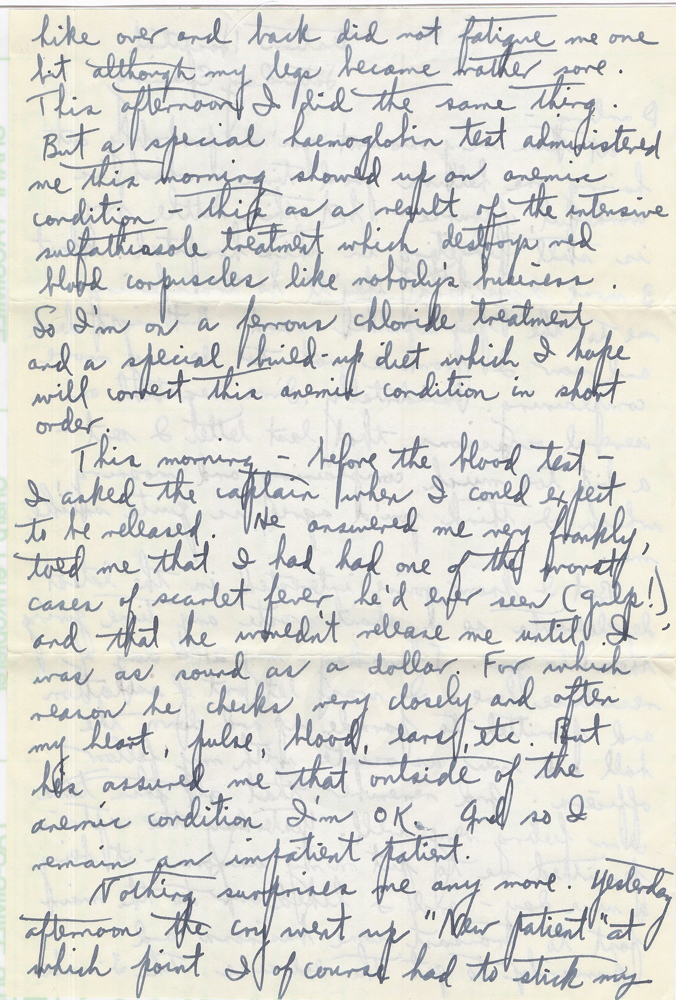 hike over and back did not fatigue me one
bit although my legs became rather sore.
This afternoon I did the same thing.
But a special haemoglobin test administered
me this morning showed up an anemic
condition – this as a result of the intensive
sulfathiasole treatment which destroys red
blood corpuscles like nobody's business.
So I'm on a ferrous chloride treatment
and a special build-up diet which I hope
will correct this anemic condition in short
order.
This morning – before the blood test –
I asked the captain when I could expect
to be released. He answered me very frankly,
told me that I had had one of the worst
cases of scarlet fever he'd ever seen (gulp!)
and that he wouldn't release me until I
was as sound as a dollar. For which
reason he checks very closely and often
my heart, pulse, blood, ears, etc. But
he's assured me that outside of the
anemic condition I'm OK. And so I
remain an impatient patient.
Nothing surprises me any more. Yesterday
afternoon the cry went up "New patient" at
which point I of course had to stick my